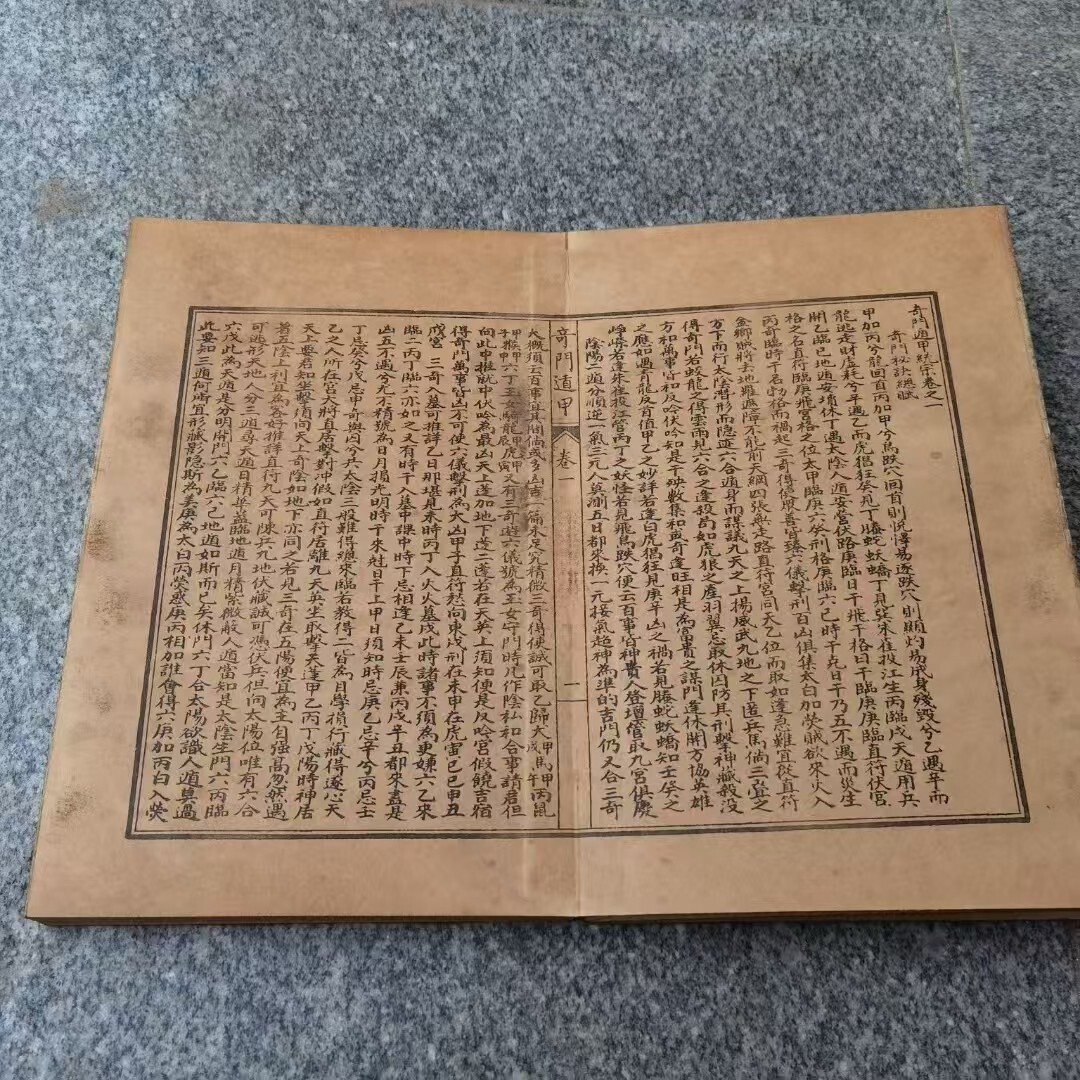 奇門遁甲統宗卷之一
奇門秘訣總賦
甲加丙兮龍回首丙加甲兮鳥跌穴回首則悅懌易逐跌穴則顯灼易成身殘毀兮乙遇辛而
龍逃走財虛耗兮辛遇乙而虎猖狂癸見丁騰蛇妖蟜丁見癸朱雀投江生丙臨戊天遁用兵
開乙臨己地遁安墳休丁遇太陰人遁安營伏路庚臨日干飛干格日干臨庚庚臨直符伏宮
格之名直符臨庚飛宮格之位大甲臨庚六癸刑格庚臨六己時干克日干乃五不遇而災生
丙奇臨時干名勃格而禍起三奇得使眾善皆臻六儀擊刑百凶俱集太白加熒賊欲來火入
金鄉賊將去地羅遮障不能前天網四張無走路直符宮同天乙位而取如逢急難宜從直符
方下而行太陰潛形而隱迹六合遁身而謀議九天之上揚威武九地之下匿兵馬倘三奇之
得奇門若蛟龍之得雲雨見六合之逢殺局如虎狼之產羽翼忌取休囚防其刑擊神藏殺沒
方和萬事皆和反吟伏吟知是干殃數集和與奇逢旺相是為富貴之謀門逢休開方協英雄
之應如遇青龍反首值甲乙之妙詳若逢白虎猖狂見庚辛凶之禍若見騰蛇妖蟜知壬癸之
崢嶸若逢朱雀投江管丙丁之妖怪若見飛鳥跌穴便云百事皆神貴人登壇管取九宮俱慶
陰陽二遁分順逆一氣三元人莫測五日都來換一元接氣超神為準的吉門仍又合三奇
奇門遁甲
卷一
一
大概須云百事宜
向此中推就中伏吟為最凶天上蓬加地下蓬二蓬若在天英上須知便是反吟宮假饒吉宿
得奇門萬事皆凶不可使六儀擊刑為大凶甲子直符愁向東戌刑在未申在虎寅巳巳甲丑
戌宮三奇入墓可推詳乙日那堪見未時丙丁入火火墓戌此時諸事不須為更嫌六乙來
臨二丙丁臨六亦如之又有時干入墓中課中時下忌相逢乙未壬辰兼丙戌辛丑都來盡是
凶五不遇兮尤不精號為日月損光明時干來尅日干上甲日須知時忌庚乙忌辛兮丙忌壬
丁忌癸兮戊忌甲奇與因兮共太陰三般難得總來臨若教得二皆為目學損行藏得遂心天
乙之人所在宮大將直居擊對冲假如直符居離九天英坐取擊天蓬甲乙丙丁戊陽時神居
天上要君知坐擊須向天上奇陰如地下亦同之若見三奇在五陽便宜為主自強高忽然遇
著五陰上利宜為客好推詳直符九天可陳兵九地伏藏誠可憑伏兵但向太陽位唯有六合
可逃形天地人分三遁尋天遁日精華蓋臨地遁月精紫微蔽人遁當知是太陰生門六丙臨
六戊此為天遁是分明開門六乙臨六己地遁如斯而已矣休門六丁合太陽欲識人遁莫過
此要知三遁何所宜形藏影隱斯為美庚為太白丙熒惑庚丙相加誰會得六庚加丙白入熒